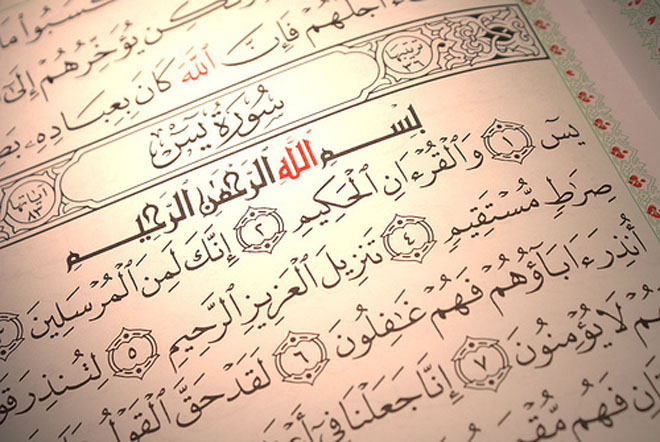 كَسَبُوا۟ مَا
وَلَٰكِن يُؤَخِّرُهُمْ إِلَىٰ
أَجَلُهُمْ فَإِنَّ ٱللَّهَ كَانَ بِعِبَادِهِۦ
سُورَةُ يسٓ
ترتيبها ٣٦
آياتها ٨٣
بِسْمِ ٱللَّهِ ٱلرَّحْمَٰنِ ٱلرَّحِيمِ
يسٓ ١ وَٱلْقُرْءَانِ ٱلْحَكِيمِ ٢ إِنَّكَ لَمِنَ ٱلْمُرْسَلِينَ
صِرَٰطٍ مُّسْتَقِيمٍ ٤ تَنزِيلَ ٱلْعَزِيزِ ٱلرَّحِيمِ ٥ لِتُنذِرَ
أُنذِرَ ءَابَآؤُهُمْ فَهُمْ غَٰفِلُونَ ٦ لَقَدْ حَقَّ ٱلْقَوْلُ
لَا يُؤْمِنُونَ ٧ إِنَّا جَعَلْنَا فِىٓ
فَهُم